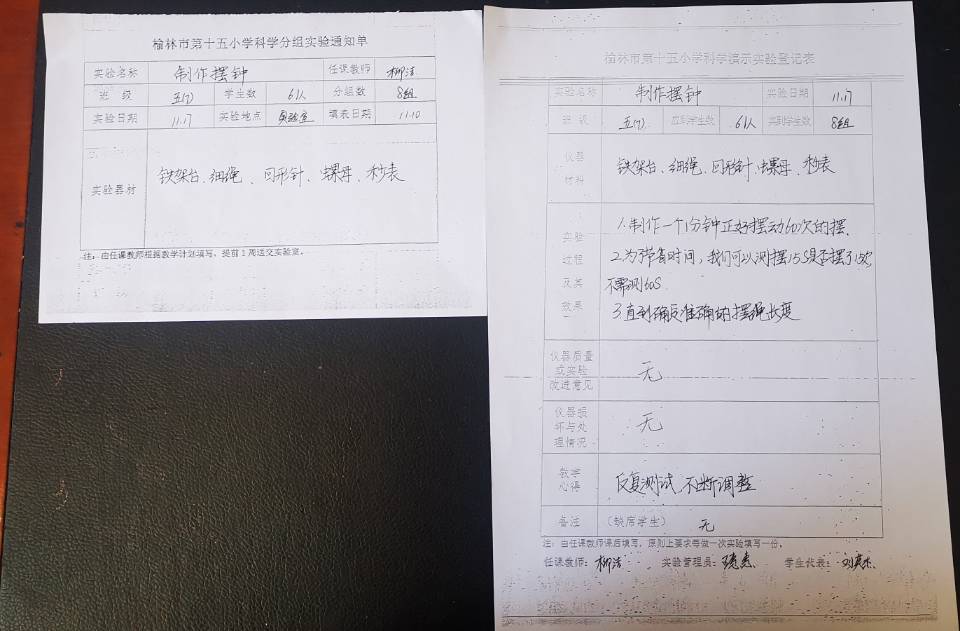 榆林市第十五小学科学分组实验通知单
实验名称 制作摆钟 任课教师 柳洁
班 级 五(7) 学生数 61人 分组数 8组
实验日期 11.17 实验地点 实验室 填表日期 11.10
实验器材 铁架台、细绳、回形针、螺母、秒表
注：由任课教师根据教学计划填写，提前1周送交实验室。
榆林市第十五小学科学演示实验登记表
实验名称 制作摆钟 实验日期 11.17
班 级 五(7) 应到学生数 61人 实到学生数 8组
仪器材料 铁架台、细绳、回形针、螺母、秒表
实验过程及其效果
1.制作一个1分钟正好摆动60次的摆.
2.为节省时间，我们可以测摆15S是否摆了15次
不需测60S.
3.直到确定准确的摆绳长度
仪器质量或实验改进意见 无
仪器损坏与处理情况 无
教学心得 反复测试、不断调整
备注 （缺席学生） 无
注：由任课教师课后填写，原则上要求每做一次实验填写一份。
任课教师：柳洁 实验管理员： 学生代表：